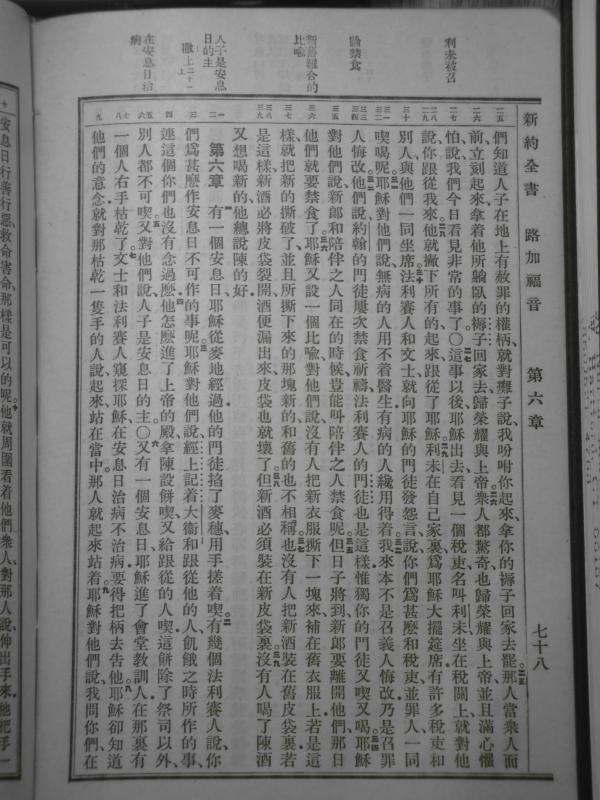 新約全書　路加福音　第六章　七十八
利未被召
論禁食
新舊難合的
比喻
人子是安息
日的主
撒上二十一
在安息日治
病
們知道人子在地上有赦罪的權柄、就對癱子說、我吩咐你起來、拿你的褥子回家去罷。那人當衆人面
前立刻起來、拿着他所躺臥的褥子回家去、歸榮耀與上帝。衆人都驚奇、也歸榮耀與上帝、並且滿心懼
怕、說我們今日看見非常的事了。○這事以後、耶穌出去、看見一個稅吏名叫利未、坐在稅關上、就對他
說、你跟從我來。他就撇下所有的起來、跟從了耶穌。利未在自己家裏、爲耶穌大擺筵席、有許多稅吏和
別人、與他們一同坐席。法利賽人和文士、就向耶穌的門徒發怨言說、你們爲甚麽和稅吏並罪人一同
喫喝呢。耶穌對他們說、無病的人用不着醫生、有病的人纔用得着。我來本不是召義人悔改、乃是召罪
人悔改。他們說、約翰的門徒屢次禁食祈禱、法利賽人的門徒也是這樣、惟獨你的門徒又喫又喝。耶穌
對他們說、新郎和陪伴之人同在的時候、豈能叫陪伴之人禁食呢。但日子將到、新郎要離開他們、那日
他們就要禁食了。耶穌又設一個比喻、對他們說、沒有人把新衣服撕下一塊來、補在舊衣服上、若是這
樣、就把新的撕破了、並且所撕下來的那塊新的、和舊的也不相稱。也沒有人把新酒裝在舊皮袋裏、若
是這樣、新酒必將皮袋裂開、酒便漏出來、皮袋也就壞了。但新酒必須裝在新皮袋裏。沒有人喝了陳酒
又想喝新的、他總說陳的好。
第六章　有一個安息日、耶穌從麥地經過、他的門徒掐了麥穗、用手搓着喫。有幾個法利賽人說、你
們爲甚麽作安息日不可作的事呢。耶穌對他們說、經上記着大衞和跟從他的人、飢餓之時所作的事、
連這個你們也沒有念過麽。他怎麽進了上帝的殿、拿陳設餅喫、又給跟從的人喫、這餅除了祭司以外、
別人都不可喫。又對他們說、人子是安息日的主。○又有一個安息日、耶穌進了會堂敎訓人、在那裏有
一個人右手枯乾了。文士和法利賽人窺探耶穌、在安息日治病不治病、要得把柄去告他。耶穌卻知道
他們的意念、就對那枯乾一隻手的人說、起來站在當中、那人就起來站着。耶穌對他們說、我問你們、在
安息日行善行惡、救命害命、那樣是可以的呢。他就周圍看着他們衆人、對那人說、伸出手來、他把手一